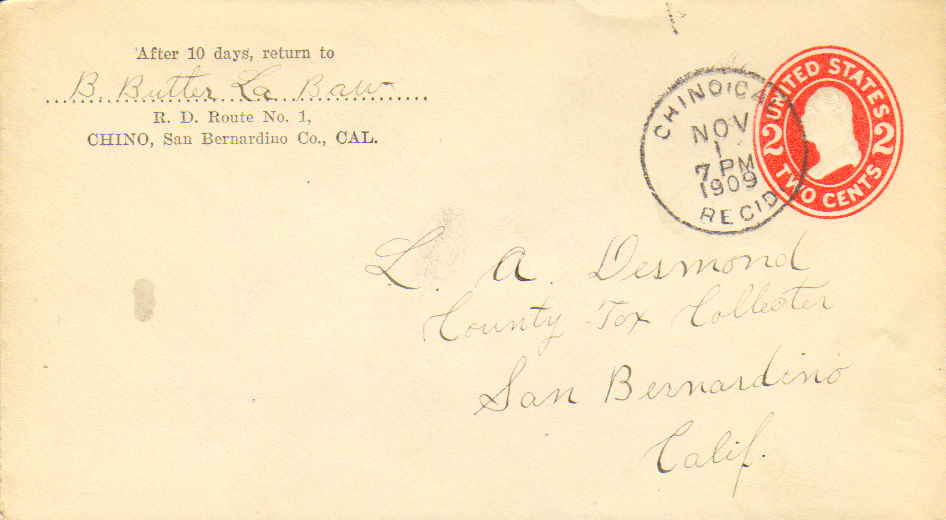 After 10 days, return to
B. Butler La Baw
R. D. Route No. 1,
CHINO, San Bernardino Co., CAL.
CHINO, CAL
NOV
1
7 PM
1909
REC'D
UNITED STATES
2 2
TWO CENTS
L. A. Desmond
County Tax Collecter
San Bernardino
Calif.